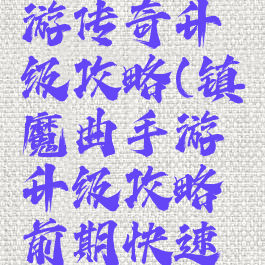 游传奇升
级攻略(镇
魔曲手游
升级攻略
前期快速